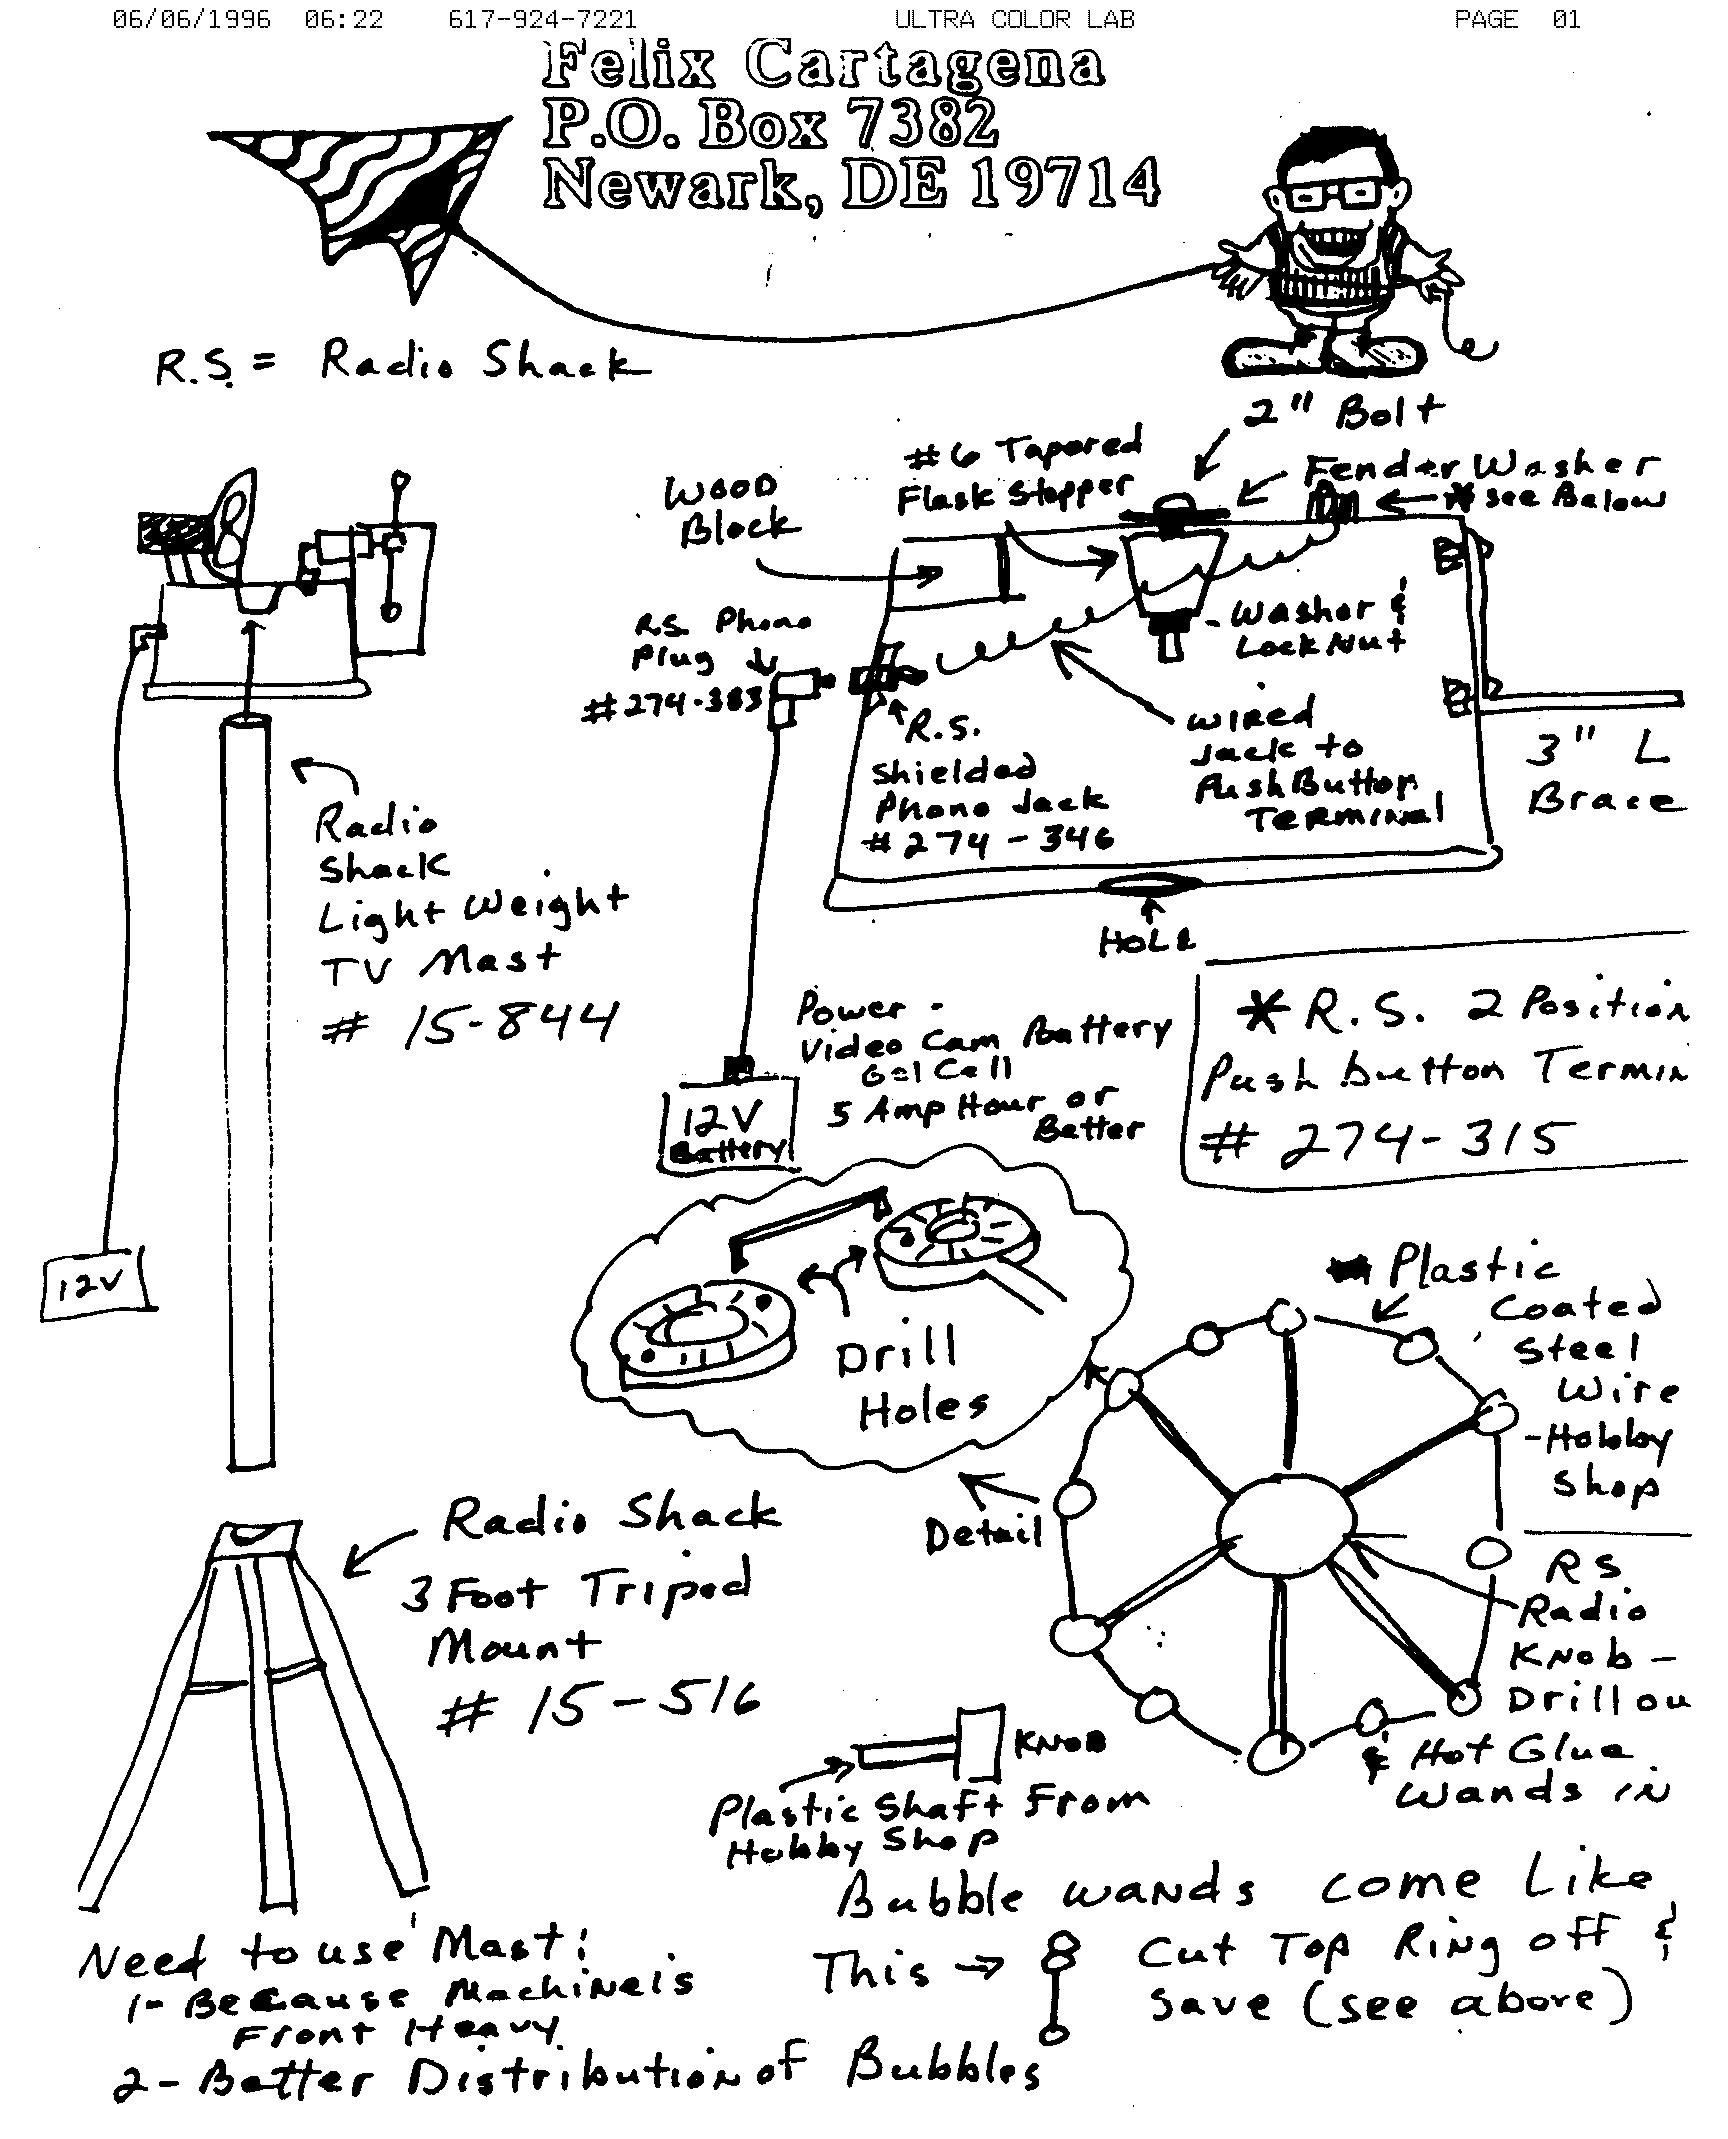 06/06/1996 06:22 617-924-7221 ULTRA COLOR LAB PAGE 01
Felix Cartagena
P.O. Box 7382
Newark, DE 19714
R.S. = Radio Shack
2" Bolt
#6 Tapered
Flask Stopper
Fender Washer
* see Below
Wood
Block
- Washer &
Lock Nut
R.S. Phono
Plug
#274-383
R.S.
Shielded
Phono Jack
#274-346
Wired
Jack to
PushButton
Terminal
3" L
Brace
HOLE
Radio
Shack
Light Weight
TV Mast
# 15-844
Power -
Video Cam Battery
Gel Cell
5 Amp Hour or
Better
12V
Battery
* R.S. 2 Position
Push button Termin
# 274-315
12V
Drill
Holes
Detail
Plastic
Coated
Steel
Wire
- Hobby
Shop
RS
Radio
Knob -
Drill ou
& Hot Glue
Wands in
Radio Shack
3 Foot Tripod
Mount
# 15-516
KNOB
Plastic Shaft From
Hobby Shop
Bubble wands come Like
This → Cut Top Ring off &
Save (see above)
Need to use Mast:
1- Because Machine is
Front Heavy
2- Better Distribution of Bubbles